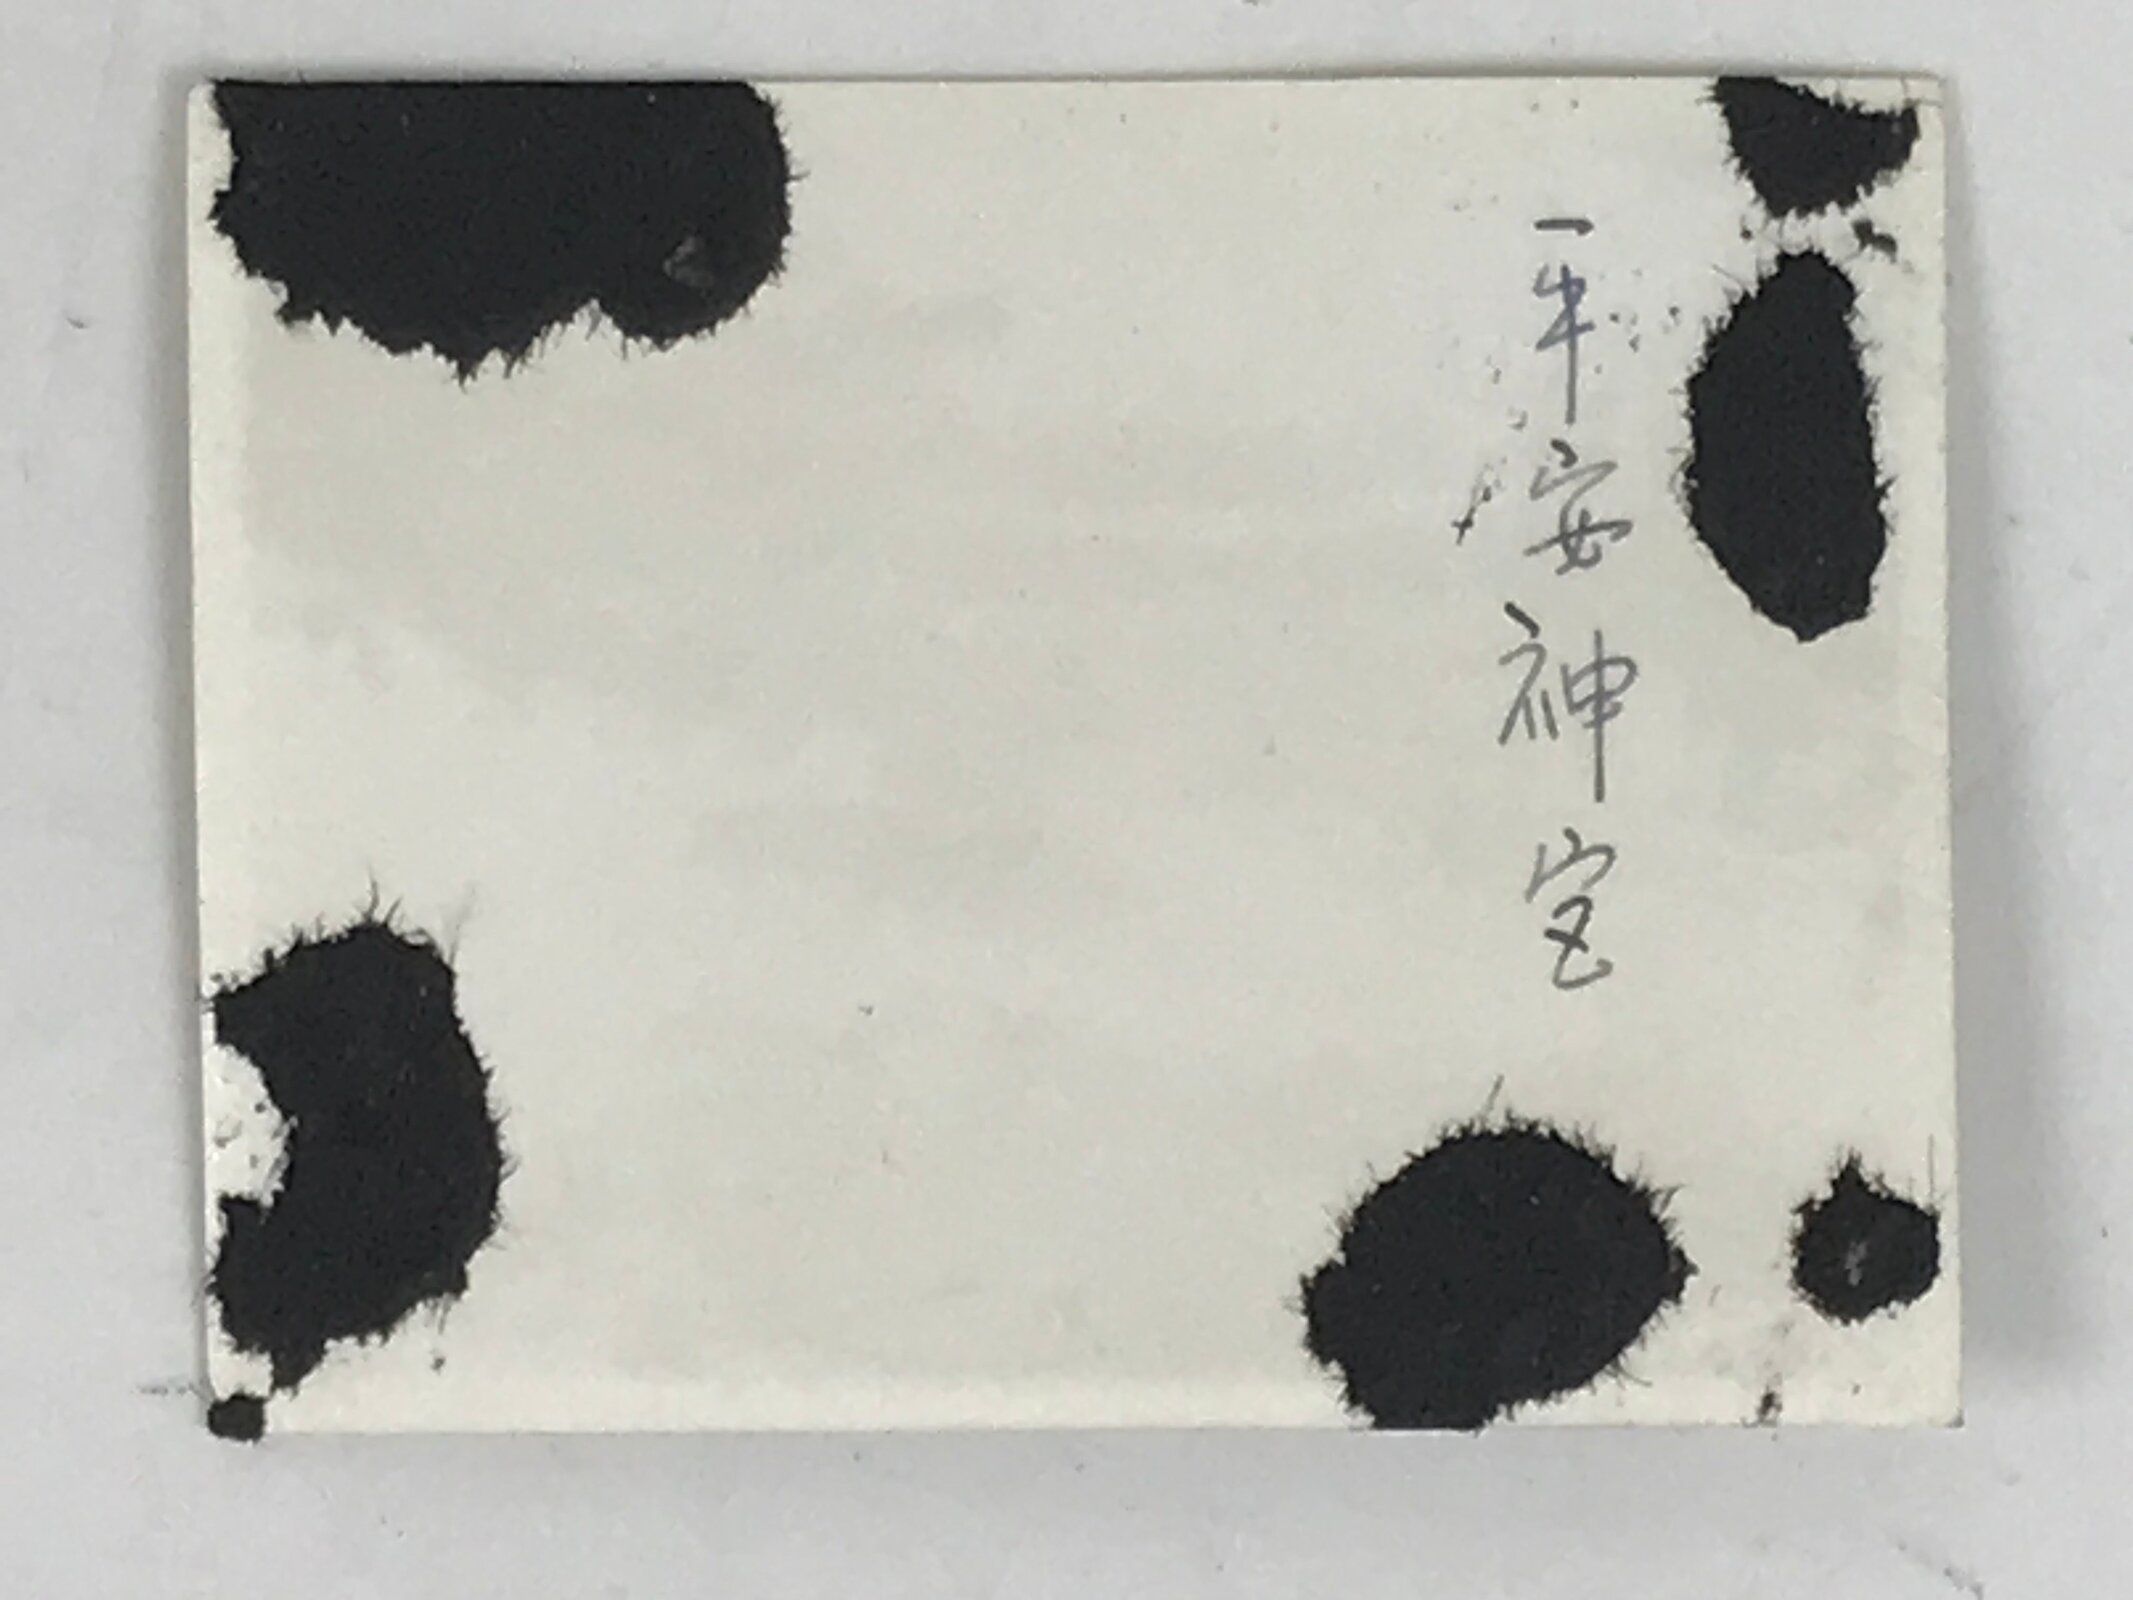 平安神宮